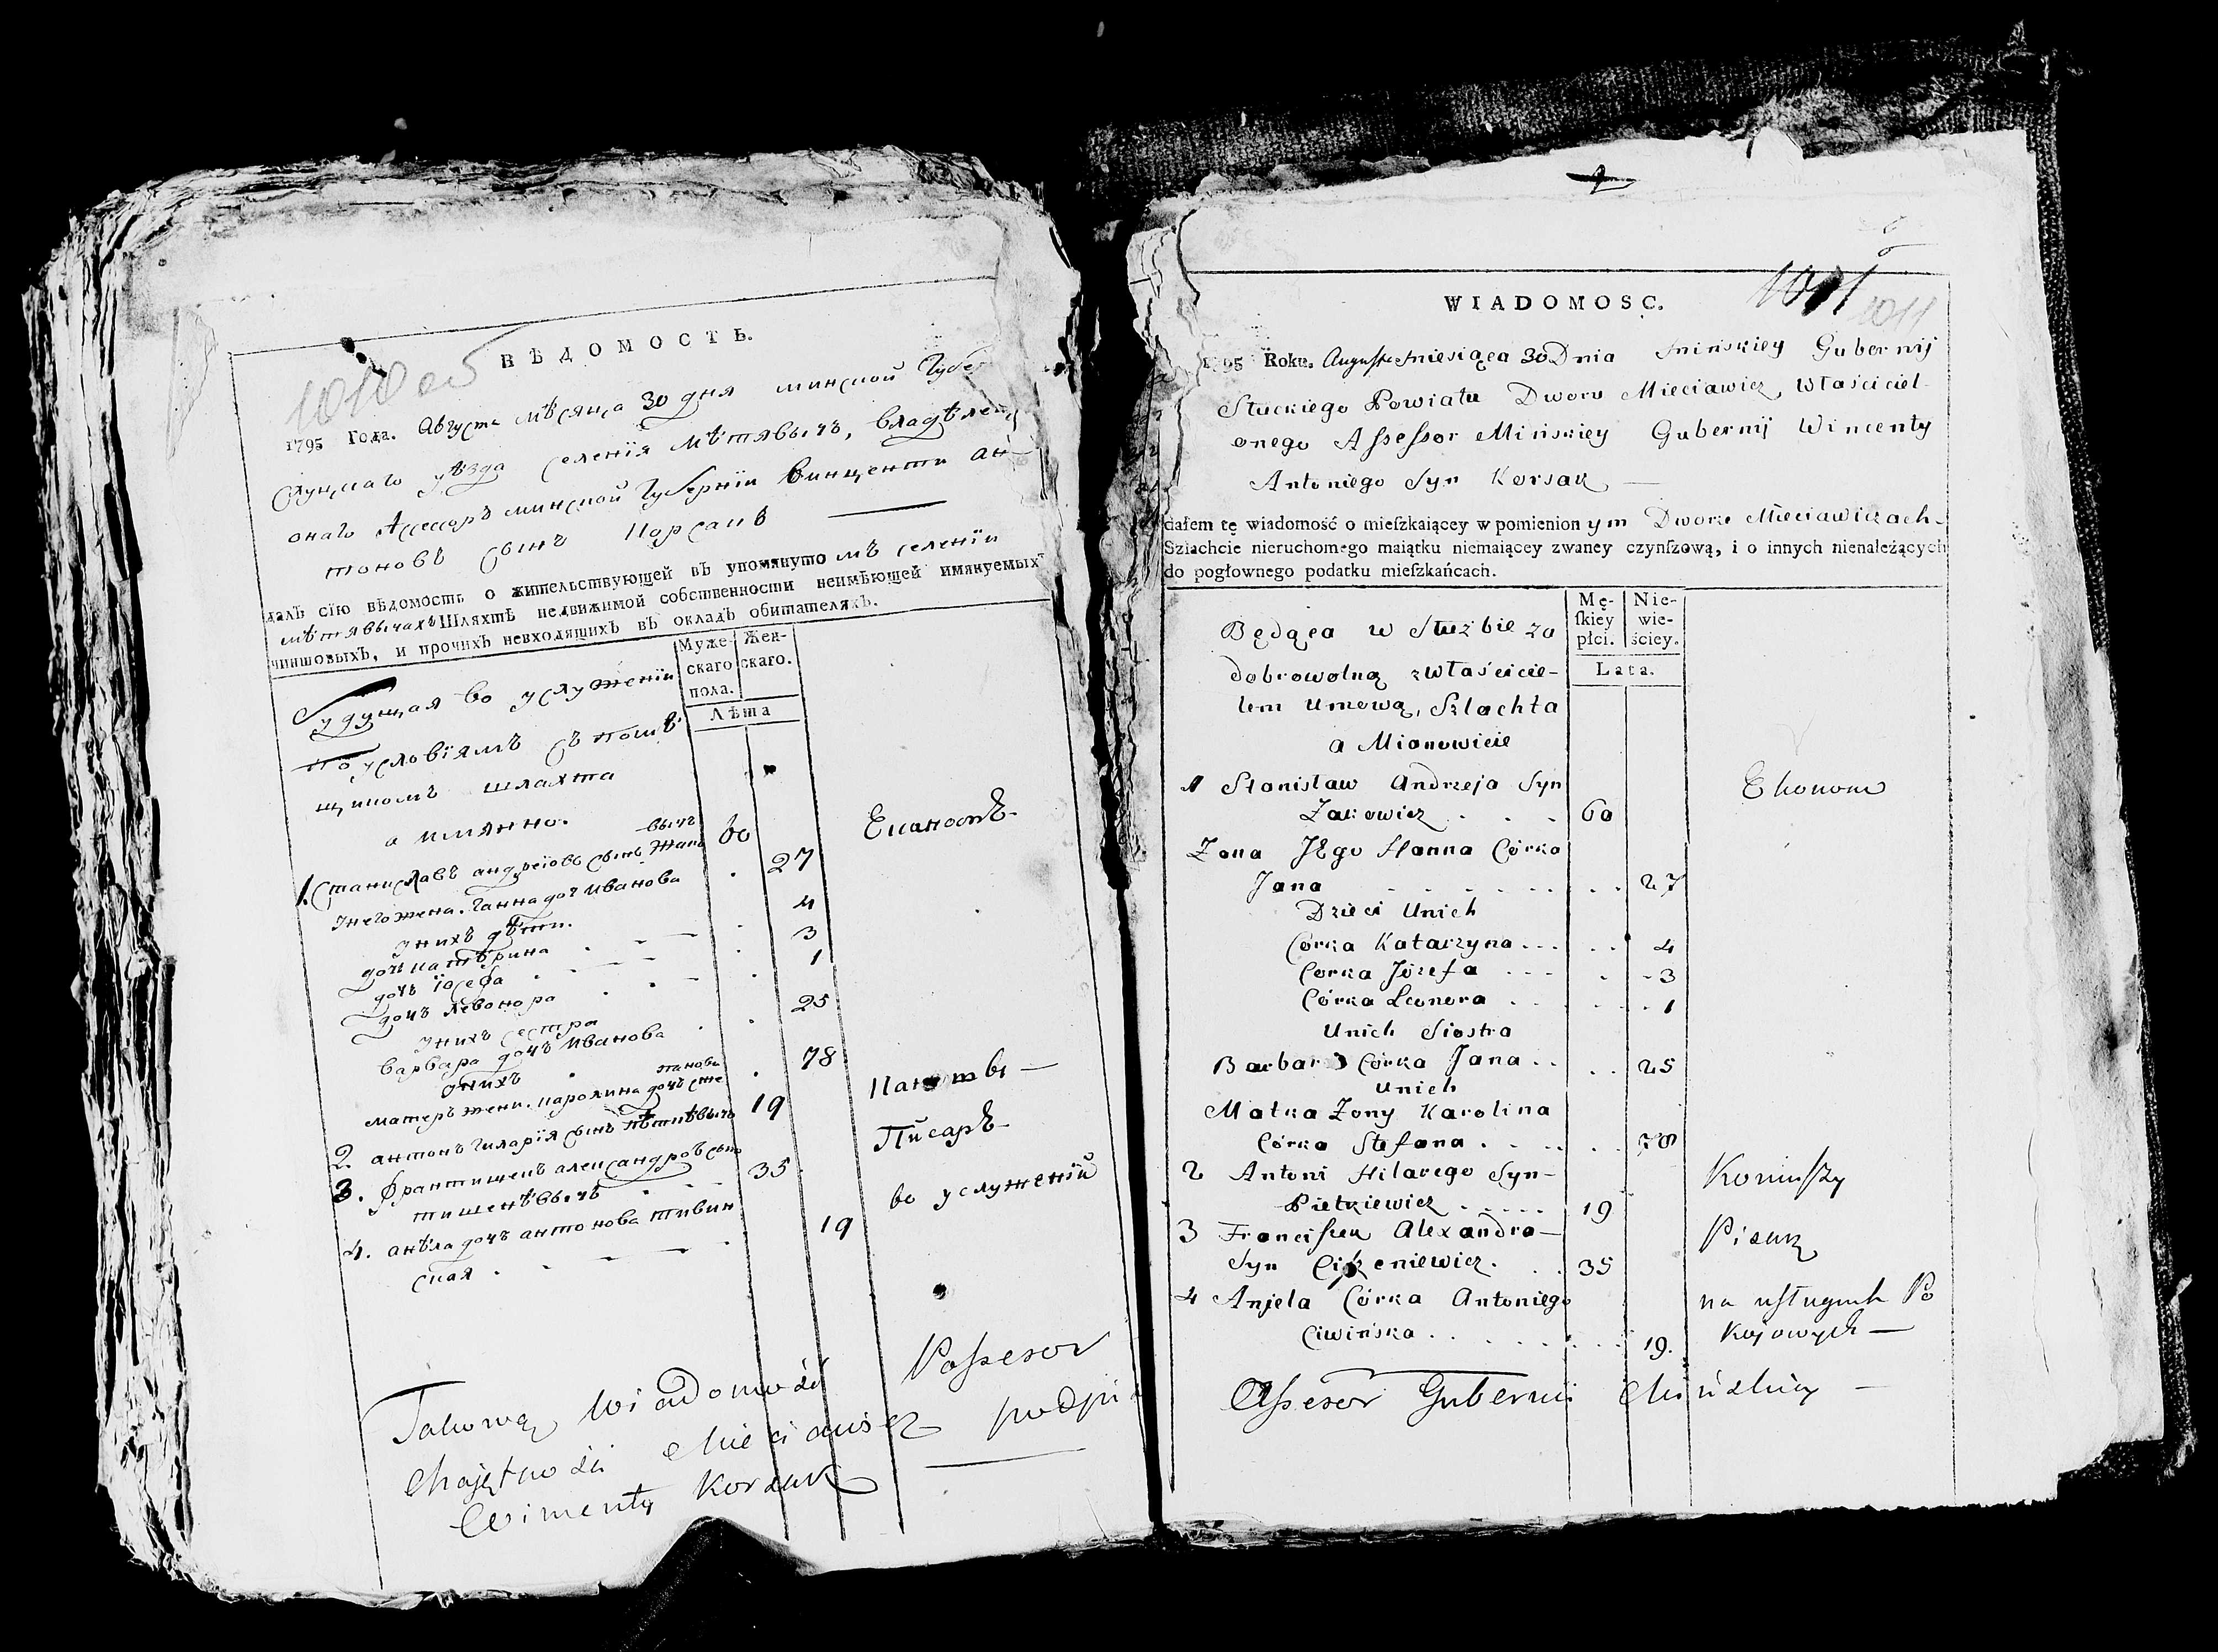 1010 об
ВѢДОМОСТЬ.
1795 Года. Августа мѣсяца 30 дня минской Губер
Слуцкаго уѣзда селенїя мѣтявычъ, владѣлецъ
онаго Ассесоръ минской Губернїи винценти ан-
тоновъ сынъ Корсакъ
далъ сїю вѣдомость о жительствующей въ упомянуто мъ селенїи
мѣтявычахъ Шляхтѣ недвижимой собственности неимѣющей имянуемыхъ
чиншовыхъ, и прочихъ невходящихъ въ окладъ обитателяхъ.
Муже- Жен-
скаго скаго.
пола.
Лѣта
Будущая во услуженїи
по условїямъ съ помѣ
щикомъ шляхта
а имянно.
1. Станиславъ андреїовъ сынъ Жако
-вычъ 60 Екановъ-
унего жена. Ганна доч иванова . 27
унихъ дѣти.
дочъ катѣрина 4
дочъ їосефа 3
дочъ левонора 1
унихъ сестра
варвара дочъ иванова 25
унихъ
матеръ жени. каролина дочъ сте
панова 78
2. антонъ гиларїя сынъ пѣткѣвычъ 19
3. францишекъ александровъ сынъ Писаръ-
тишенѣвычъ 35
4. анѣла дочъ антонова тивин во услуженїй
ская 19
Takową wiadomość Possesor
Majętnośći Mieciawicz podpi
Wincenty Korsak
1011 1011
WIADOMOSC.
1795 Roku. Augusta miesiąca 30 Dnia Mińskiey Gubernij
Słuckiego Powiatu Dworu Mieciawicz, Właściciel
onego Assessor Mińskiey Gubernij Wincenty
Antoniego Syn Korsak
dałem tę wiadomość o mieſzkaiącey w pomienion ym Dworze Mieciawiczach-
Szlachcie nieruchomego maiątku niemaiącey zwaney czynſzową, i o innych nienależących
do pogłownego podatku mieſzkańcach.
Mę- Nie-
ſkiey wie-
płci. ściey.
Lata.
Będąca w Służbie za
dobrowolną z właściciel-
lem Umową, Szlachta
a Mianowicie
1 Stanisław Andrzeja Syn Ekonom
Zakowicz . . . 60
Zona JEgo Hanna Córka
Jana . . . 27
Dzieci Unich
Córka Katarzyna . . . 4
Corka Józefa . . . 3
Córka Leonora . . . 1
Unich Siostra
Barbara Córka Jana . . 25
Unich
Matka Zony Karolina
Córka Stefana . . . 78
2 Antoni Hilarego Syn- Koniuſzy
Pietkiewicz . . . . . 19
3 Franciſzek Alexandra- Pisarz
Syn Ciszeniewicz. . . 35
4 Anjela Córka Antoniego na usługach Po
Ciwińska . . . . . 19. kojowych —
Assesor Gubernii Mińskiey —